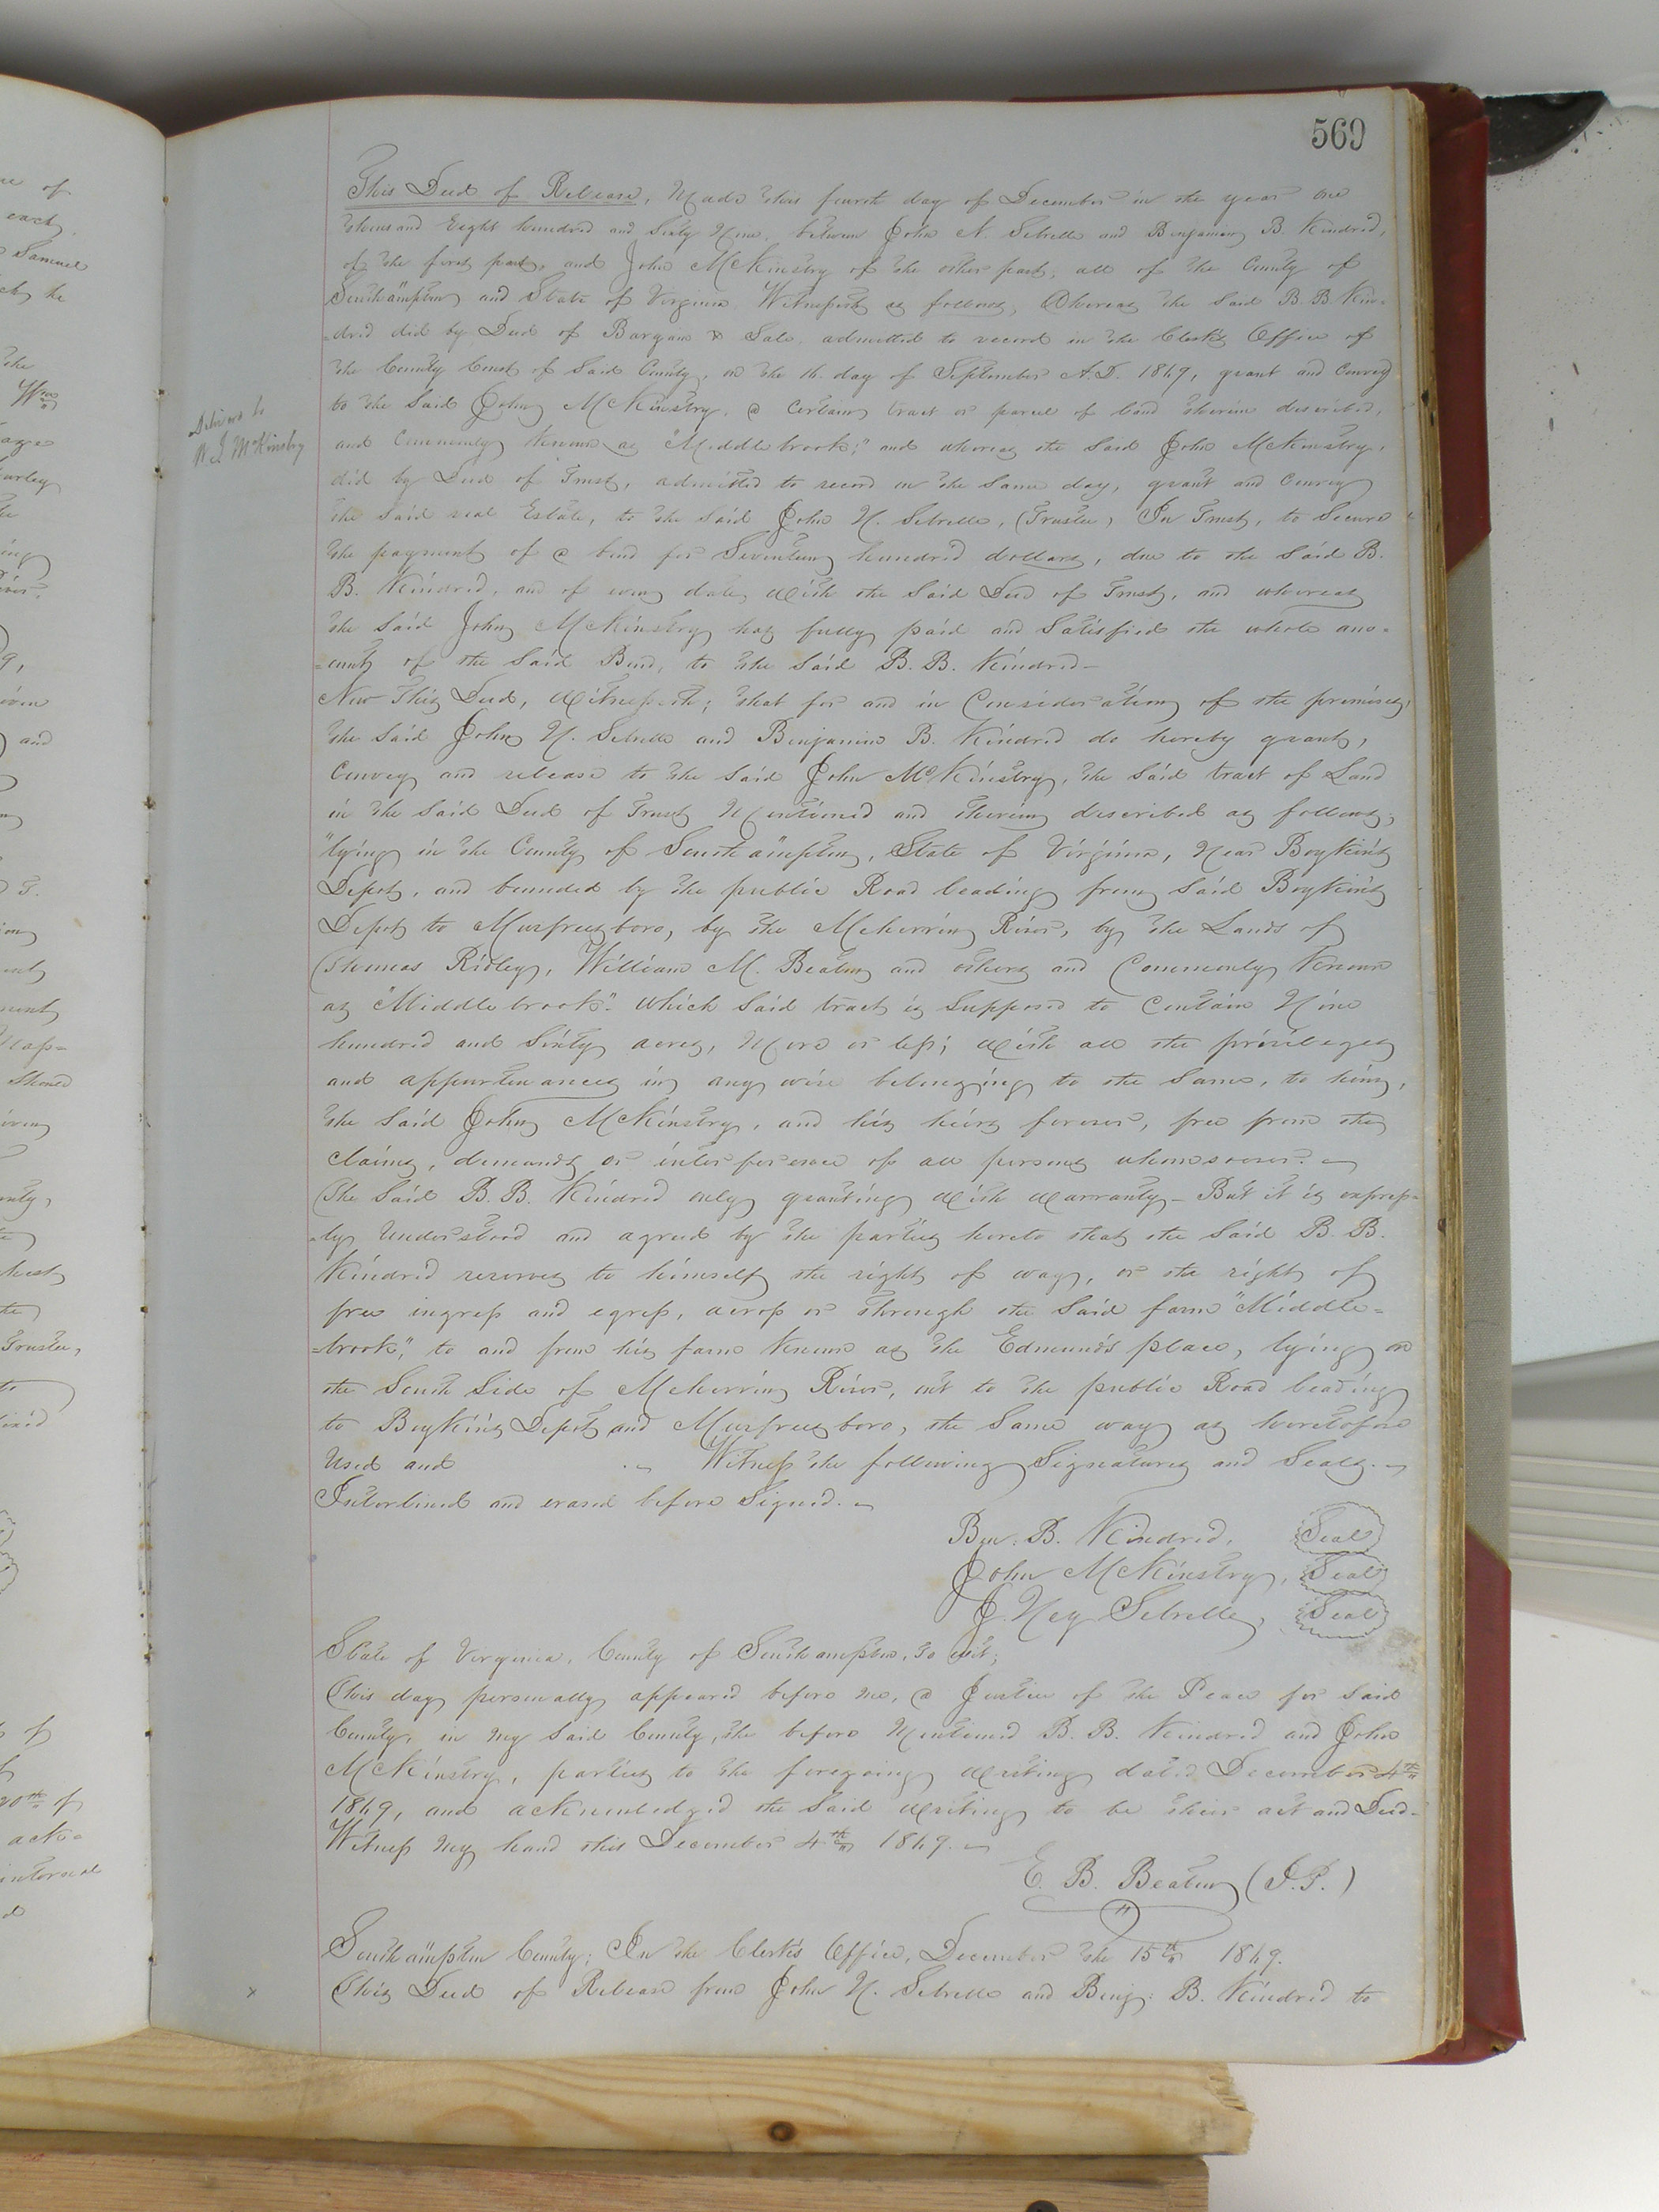 569
This Deed of Release, Made this fourth day of December in the year one
thousand Eight hundred and Sixty Nine, between John N. Sebrelle and Benjamin B. Kindred,
of the first part, and John McKinstry of the other part, all of the County of
Southampton and State of Virginia. Witnesseth as follows, Whereas the Said B. B. Kin-
-dred did by Deed of Bargain & Sale, admitted to record in the Clerk's Office of
the County Court of Said County, on the 16 day of September A.D. 1869, grant and Convey
to the Said John McKinstry, a Certain tract or parcel of land therein described,
and Commonly Known as "Middlebrook;" and whereas the Said John McKinstry,
did by Deed of Trust, admitted to record on the Same day, grant and Convey
the Said real Estate, to the Said John N. Sebrelle, (Trustee) In Trust, to Secure
the payment of a bond for Seventeen hundred dollars, due to the Said B.
B. Kindred, and of even date, With the Said Deed of Trust, and whereas
the Said John McKinstry has fully paid and Satisfied the whole amo-
-unt of the Said Bond, to the Said B. B. Kindred-
Now This Deed, Witnesseth; that for and in Consideration of the premises,
the Said John N. Sebrelle and Benjamin B. Kindred do hereby grant,
Convey and release to the Said John McKinstry, the Said tract of Land
in the Said Deed of Trust Mentioned and therein described as follows;
"lying in the County of Southampton, State of Virginia, Near Boykins
Depot, and bounded by the public Road leading from Said Boykins
Depot to Murfreesboro, by the Meherrin River, by the Lands of
Thomas Ridley, William M. Beaton and others and Commonly Known
as "Middlebrook". which Said tract is Supposed to Contain Nine
hundred and Sixty acres, More or less; With all the privileges
and appurtenances in any wise belonging to the Same, to him,
the Said John McKinstry, and his heirs forever, free from the
claims, demands or interference of all persons whomsoever.
The Said B. B. Kindred only granting With Warranty - But it is express-
-ly Understood and agreed by the parties hereto that the Said B. B.
Kindred reserves to himself the right of way, or the right of
free ingress and egress, across or through the Said farm "Middle-
-brook", to and from his farm Known as the Edmunds place, lying on
the South Side of Meherrin River, out to the public Road leading
to Boykins Depot and Murfreesboro, the Same way as heretofore
Used and Witness the following Signatures and Seals.
Interlined and erased before Signed.
Ben: B. Kindred, Seal
John McKinstry, Seal
J. Ney Sebrelle, Seal
State of Virginia, County of Southampton, To wit;
This day personally appeared before me, a Justice of the Peace for Said
County, in My Said County, the before Mentioned B. B. Kindred and John
McKinstry, parties to the foregoing Writing dated December 4th
1869, and acknowledged the Said Writing to be their act and Deed-
Witness My hand this December 4th 1869.
E. B. Beaton (J.P.)
Southampton County: In the Clerk's Office, December the 15th 1869.
This Deed of Release from John N. Sebrelle and Benj: B. Kindred to